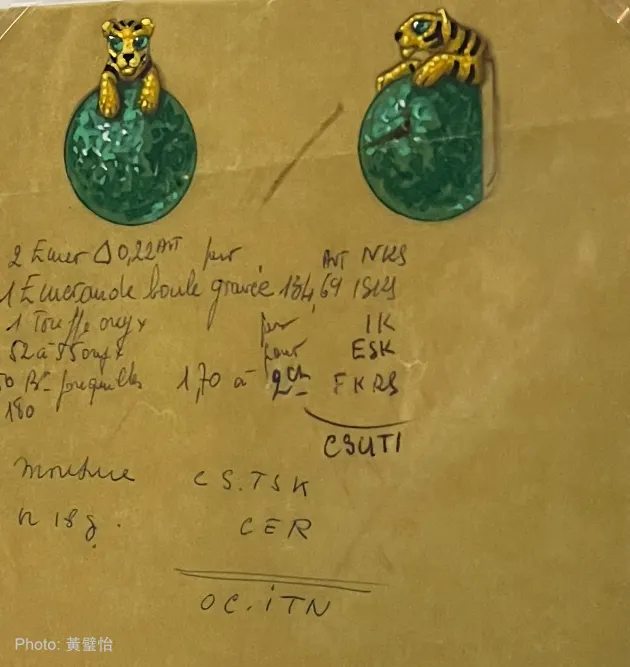 2 Emer Δ 0,22 ART pur ART NKS
1 Emeraude boule gravée 134,69 ISKS
1 Touffe onyx pur IK
52 à 55 onyx pour ESK
50 Bts jonquilles 1,70 à 2 cts FKRS
180
CSUTI
monture CS.TSK
n 18 g. CER
OC.iTN
Photo: 黃璧怡